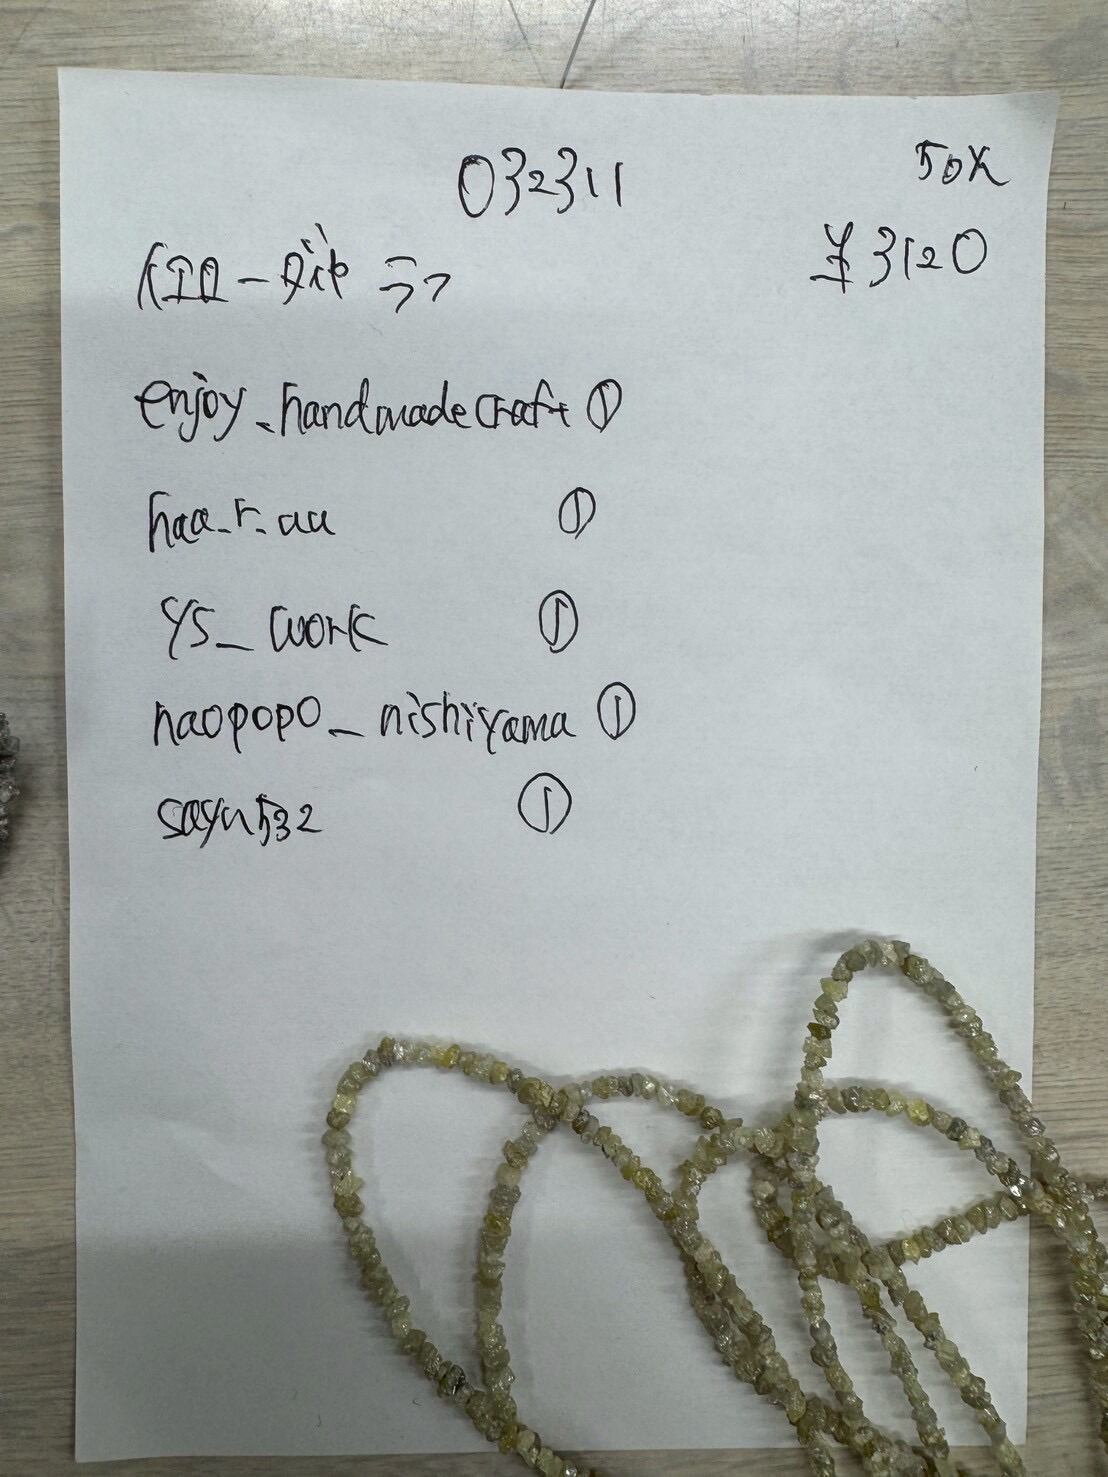 032311
50%
イエロ-ダイヤ ラフ
¥3120
enjoy_handmadecraft ①
haa_r_aa ①
ys_work ①
naopopo_nishiyama ①
sayu532 ①